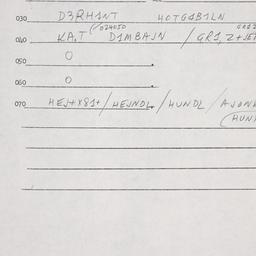 030 D3RH1NT HOTG1B1LN
024050
040 KA,T D1MBAJN / GR1, Z+JE
050 O
060 O
070 HEJ+X81+ / HEJNDL / HUNDL / AJON
(HUN